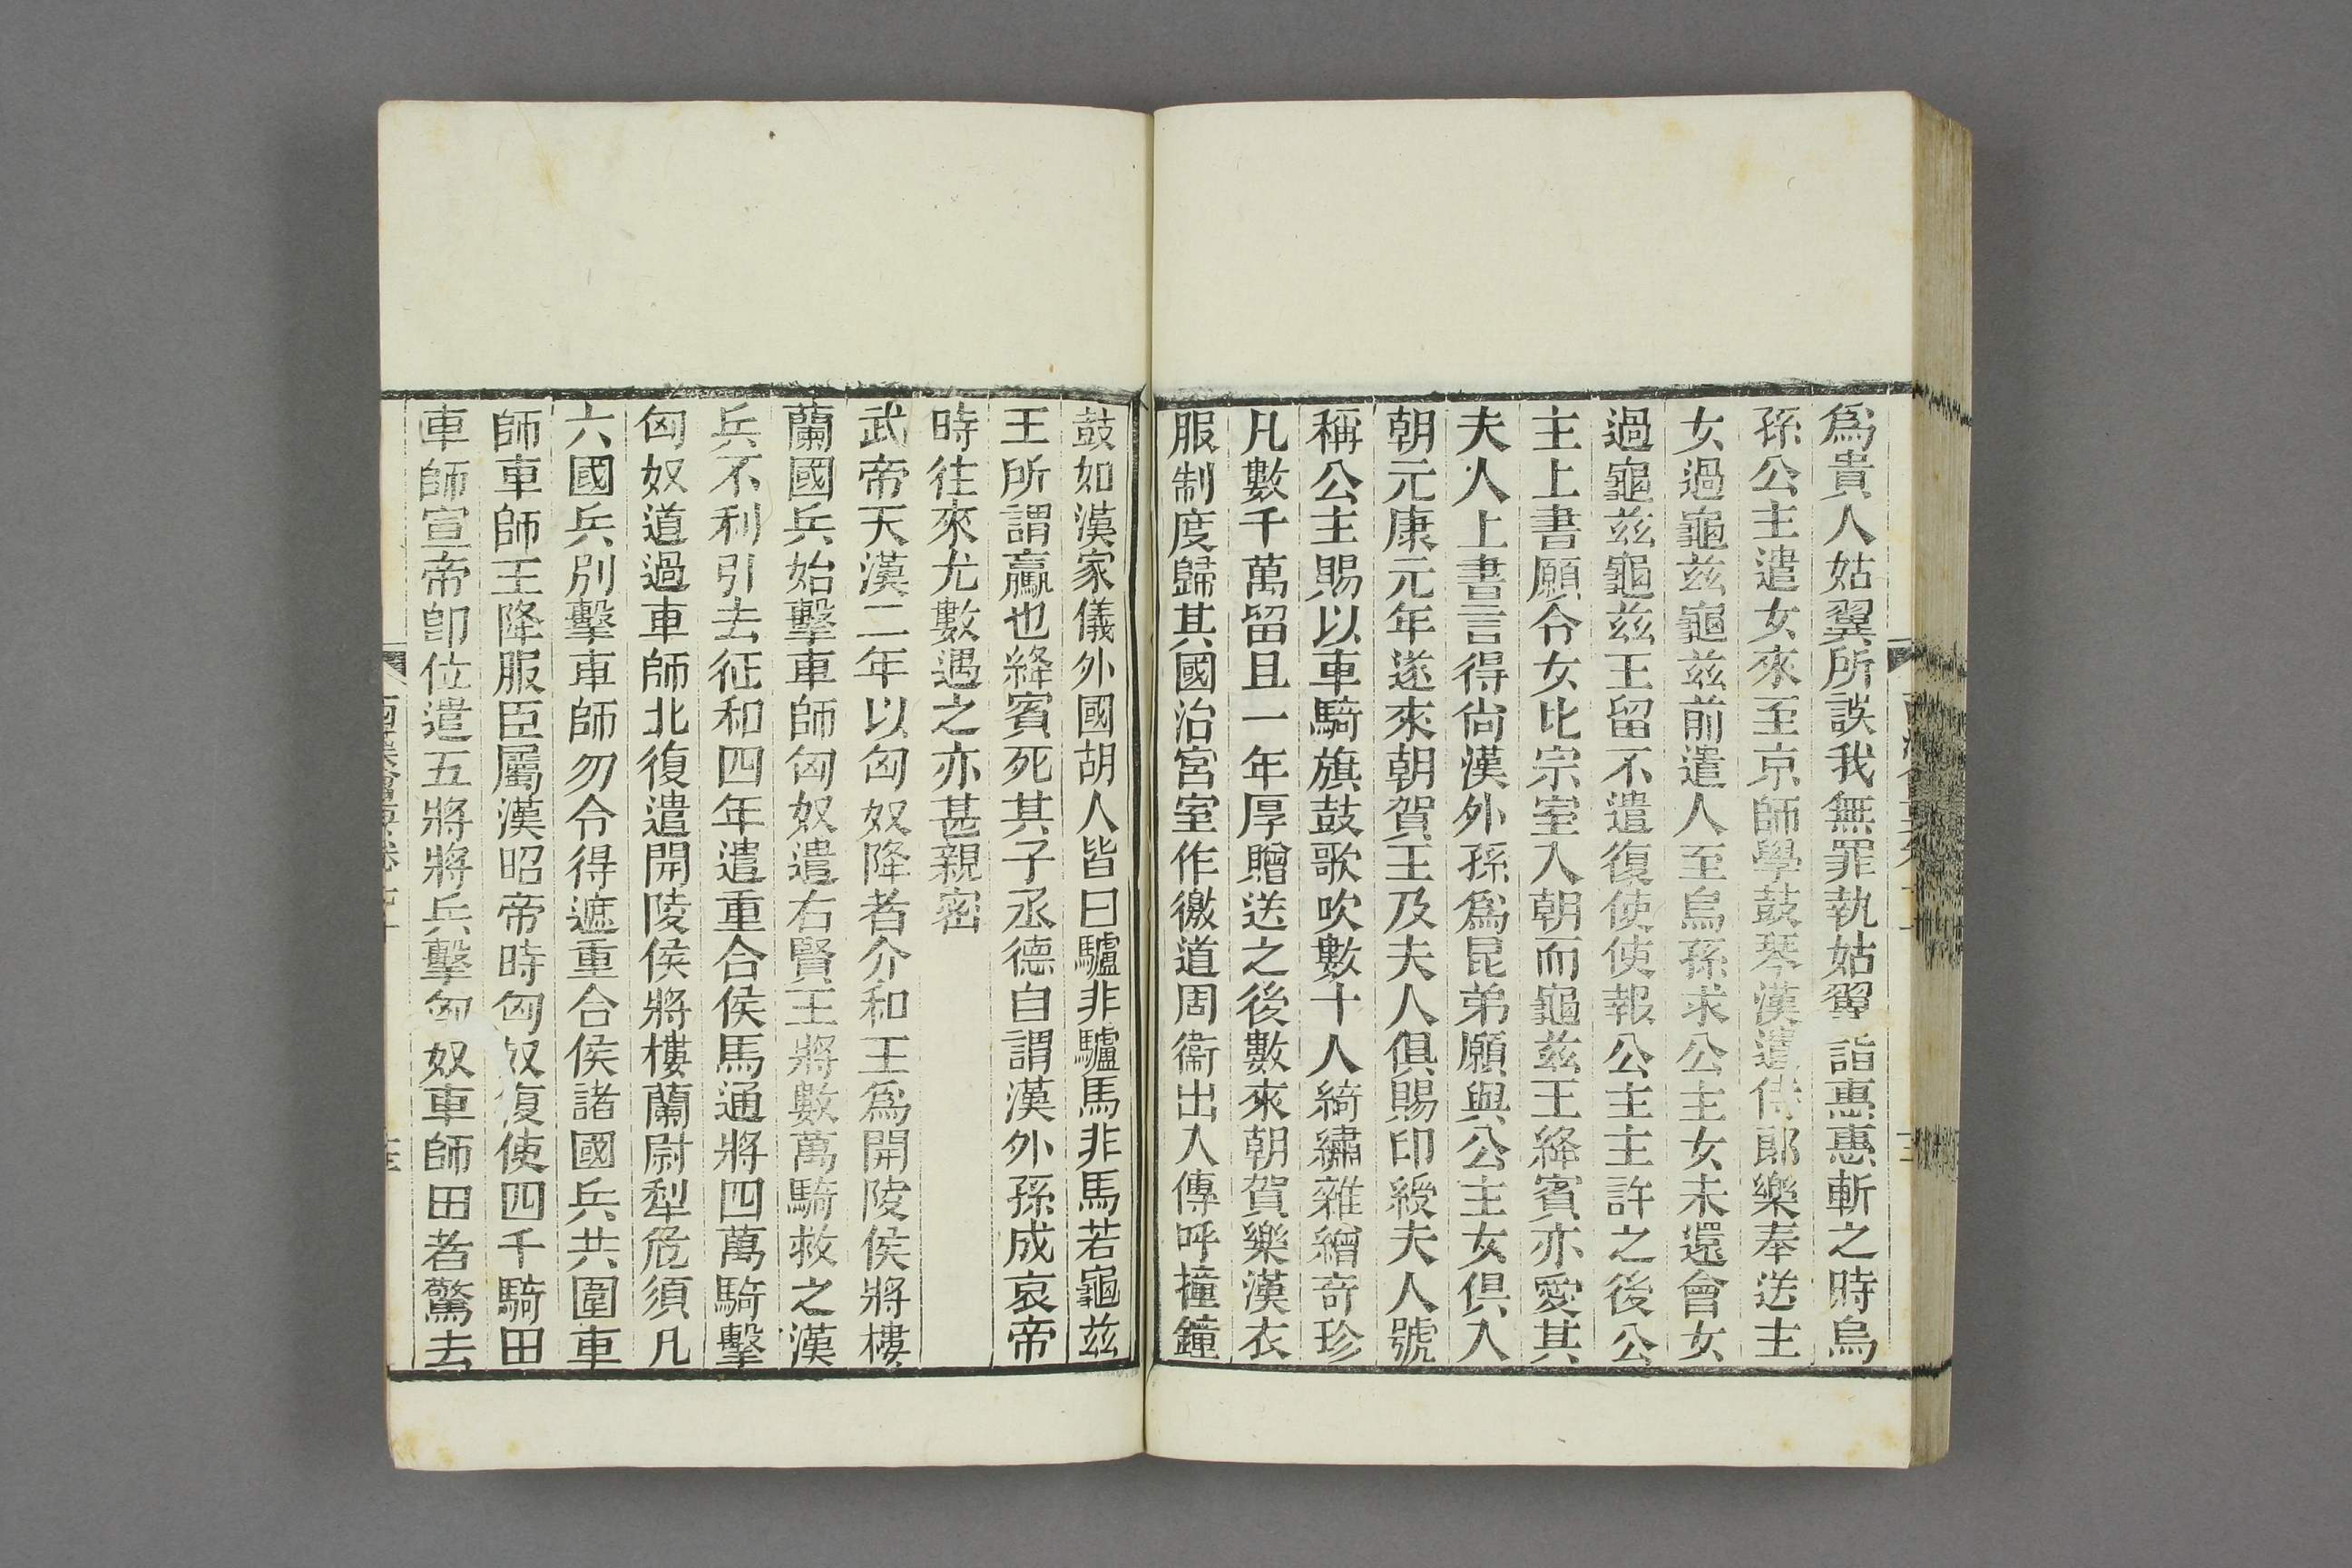 爲貴人姑翼所誤我無罪執姑翼詣惠惠斬之時烏
孫公主遣女來至京師學鼓琴漢遣侍郎樂奉送主
女過龜茲龜茲前遣人至烏孫求公主女未還會女
過龜茲龜茲王留不遣復使使報公主主許之後公
主上書願令女比宗室入朝而龜茲王絳賓亦愛其
夫人上書言得尙漢外孫爲昆弟願與公主女俱入
朝元康元年遂來朝賀王及夫人俱賜印綬夫人號
稱公主賜以車騎旗鼓歌吹數十人綺繡雜繒奇珍
凡數千萬留且一年厚贈送之後數來朝賀樂漢衣
服制度歸其國治宮室作徼道周衞出入傳呼撞鐘
鼓如漢家儀外國胡人皆曰驢非驢馬非馬若龜茲
王所謂驘也絳賓死其子丞德自謂漢外孫成哀帝
時往來尤數遇之亦甚親密
武帝天漢二年以匈奴降者介和王爲開陵侯將樓
蘭國兵始擊車師匈奴遣右賢王將數萬騎救之漢
兵不利引去征和四年遣重合侯馬通將四萬騎擊
匈奴道過車師北復遣開陵侯將樓蘭尉犁危須凡
六國兵別擊車師勿令得遮重合侯諸國兵共圍車
師車師王降服臣屬漢昭帝時匈奴復使四千騎田
車師宣帝卽位遣五將將兵擊匈奴車師田者驚去